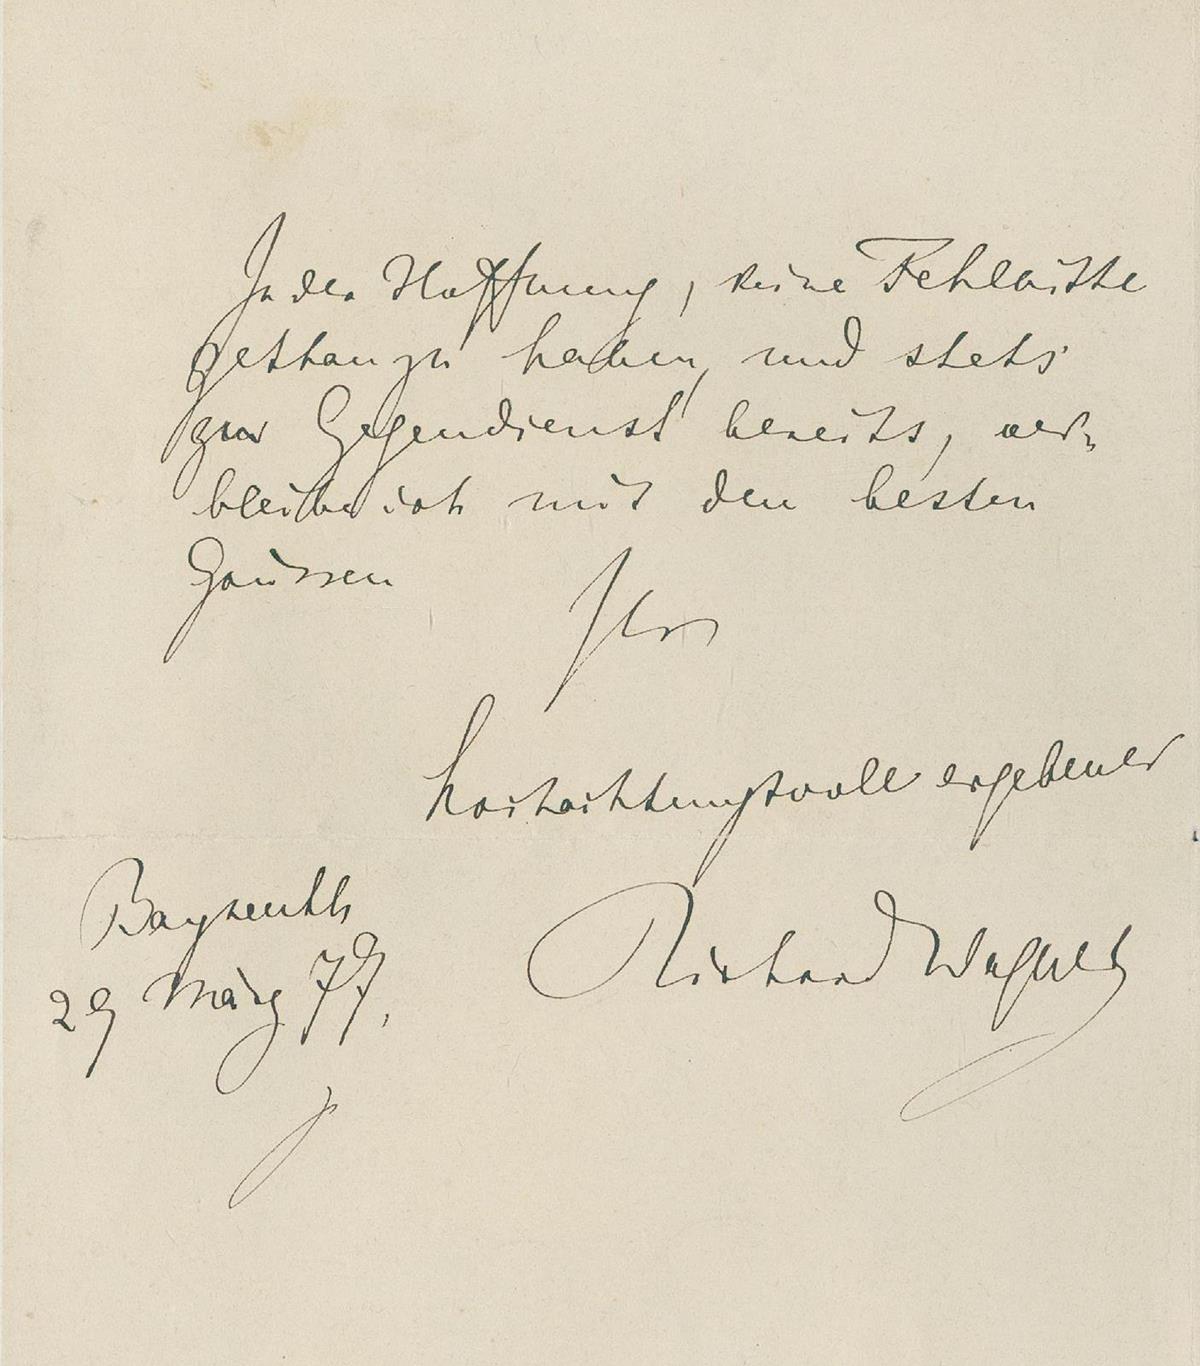 In der Hoffnung, keine Fehlbitte
gethan zu haben, und stets
zur Gegendienst bereits, ver-
bleibe ich mit den besten
Grüssen
Ihr
hochachtungsvoll ergebener
Bayreuth
Richard Wagner
29 März 77.